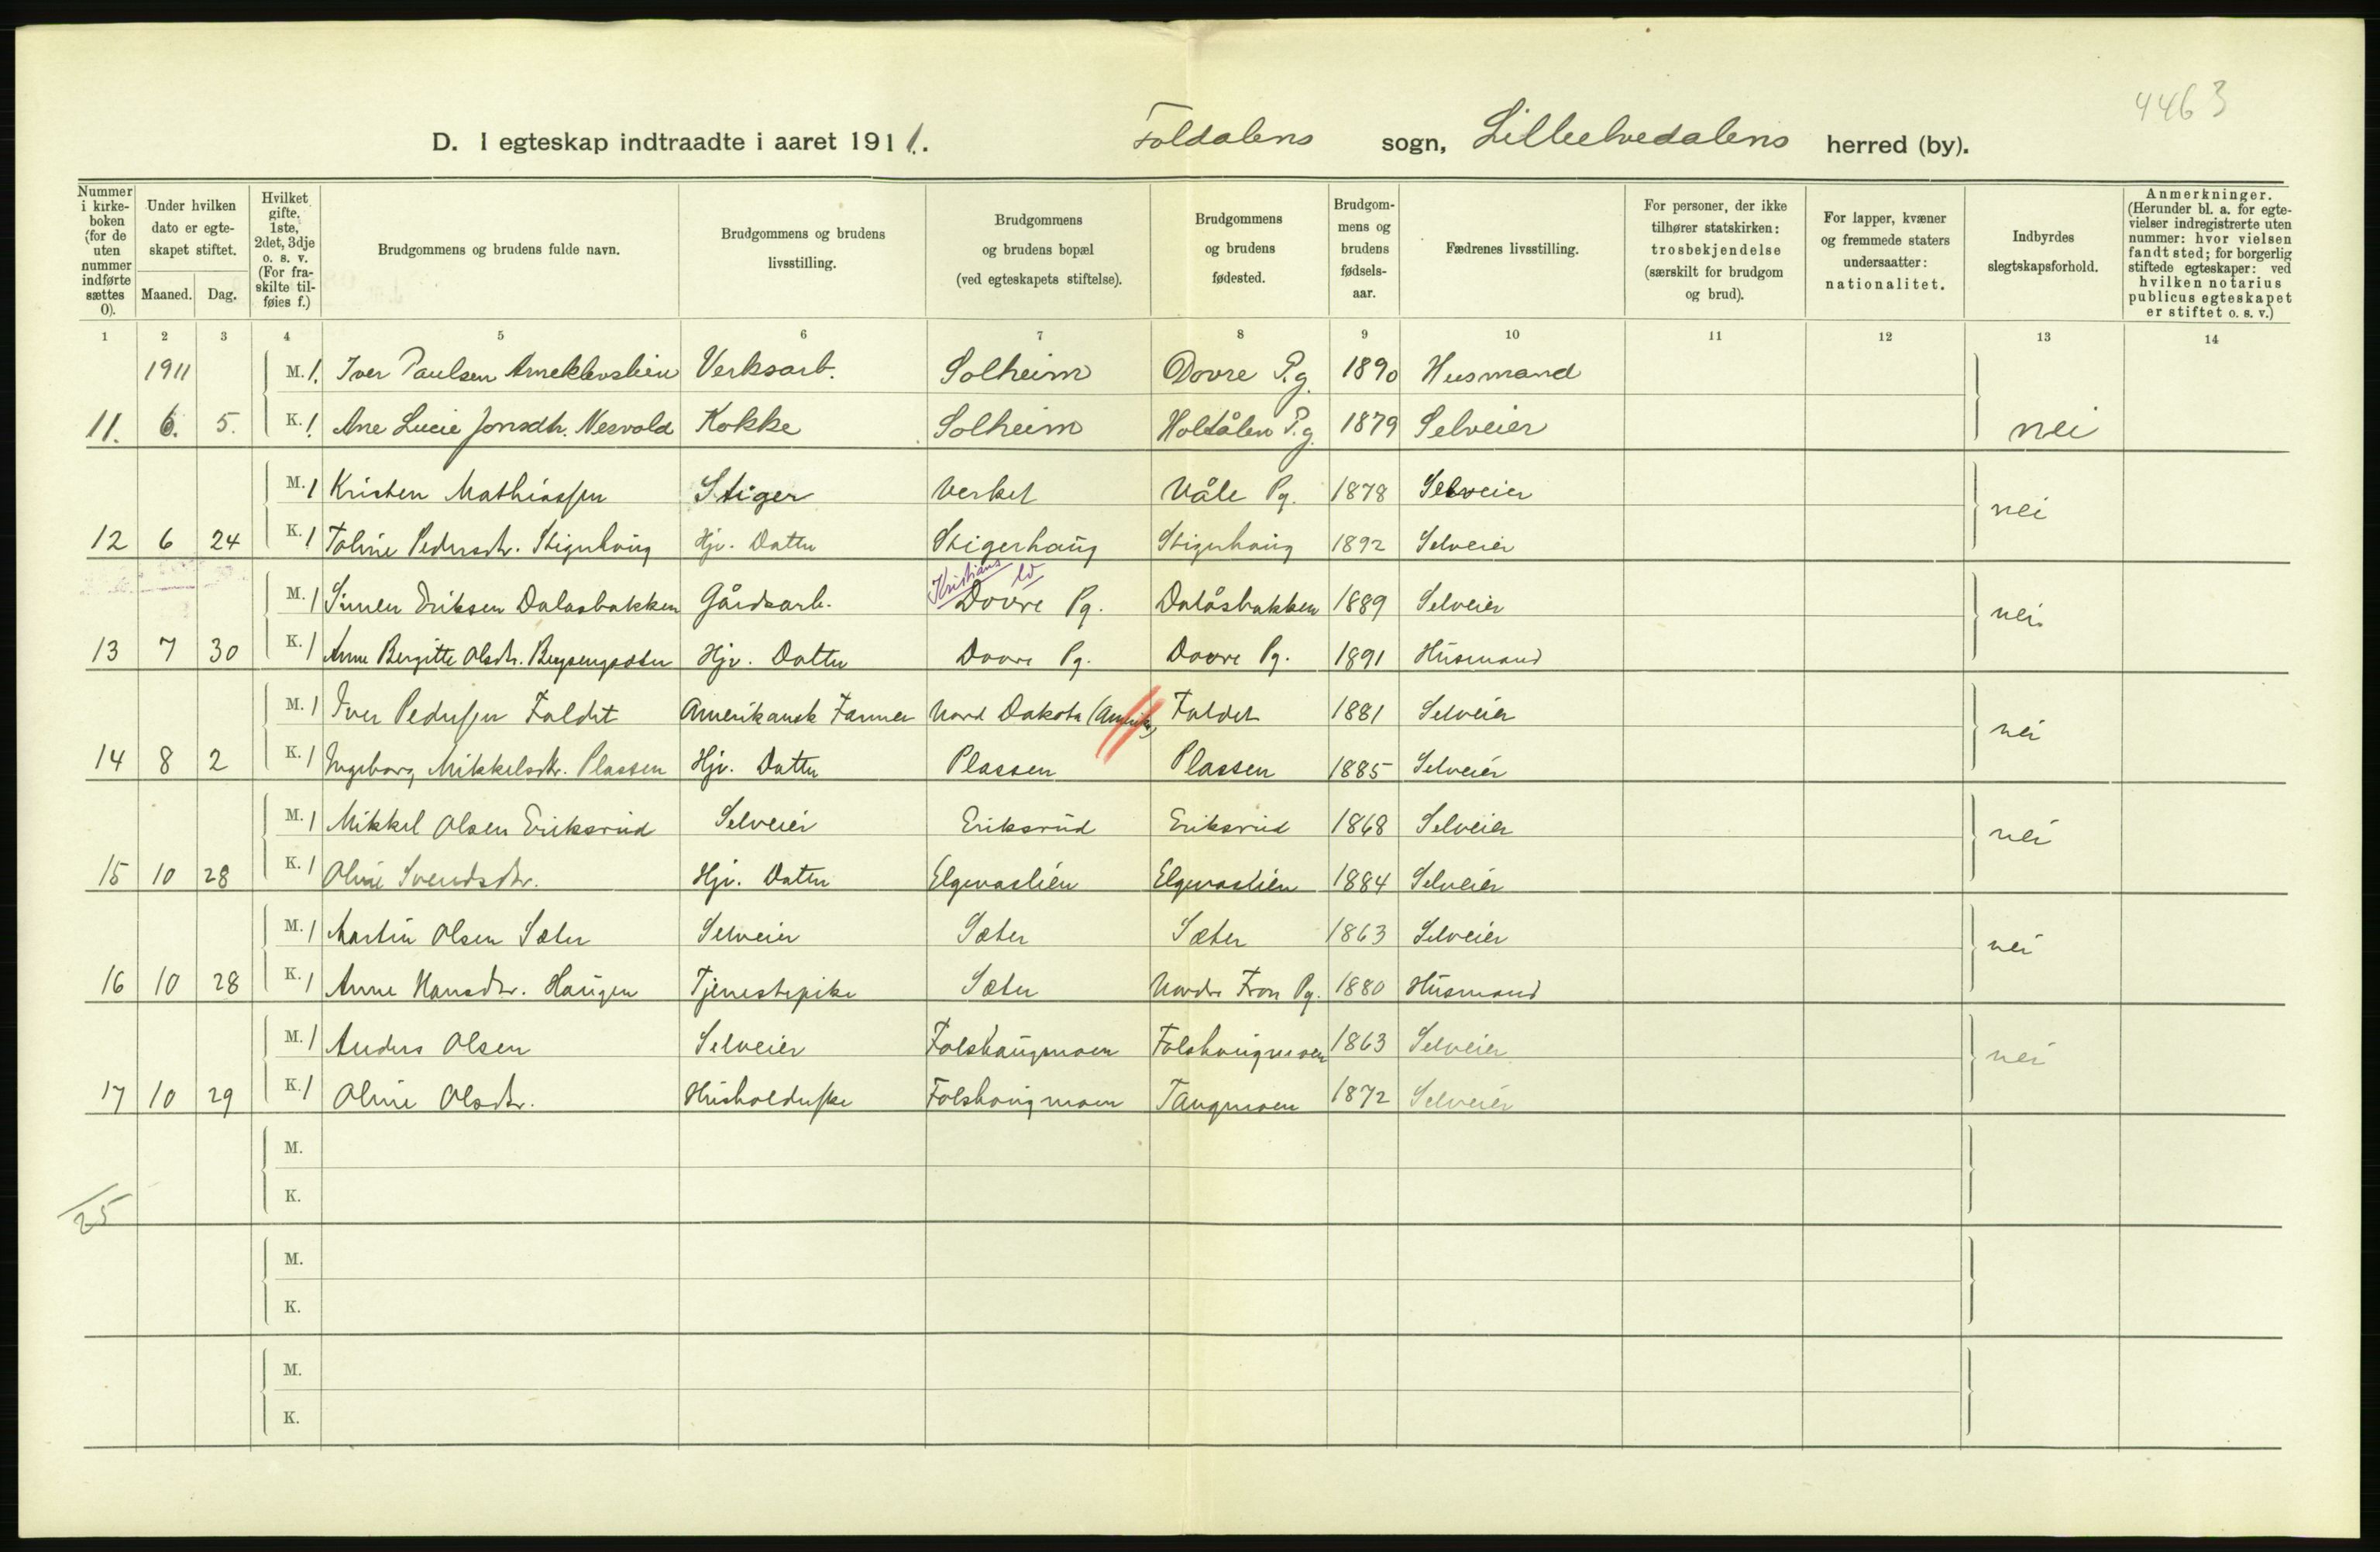 4463
D. I egteskap indtraadte i aaret 1911. Foldalens sogn, Lilleelvedalens herred (by).
Nummer i kirkeboken (for de uten nummer indførte sættes 0). Under hvilken dato er egteskapet stiftet. Maaned. Dag. Hvilket gifte. 1ste, 2det, 3dje o. s. v. (For fraskilte tilføies f.) Brudgommens og brudens fulde navn. Brudgommens og brudens livsstilling. Brudgommens og brudens bopæl (ved egteskapets stiftelse). Brudgommens og brudens fødested. Brudgommens og brudens fødselsaar. Fædrenes livsstilling. For personer, der ikke tilhører statskirken: trosbekjendelse (særskilt for brudgom og brud). For lapper, kvæner og fremmede staters undersaatter: nationalitet. Indbyrdes slegtskapsforhold. Anmerkninger. (Herunder bl. a. for egtevielser indregistrerte uten nummer: hvor vielsen fandt sted; for borgerlig stiftede egteskaper: ved hvilken notarius publicus egteskapet er stiftet o. s. v.)
1 2 3 4 5 6 7 8 9 10 11 12 13 14
1911 M. 1. Iver Paulsen Verksarb. Solheim Dovre P.g. 1890 Husmand
11. 6. 5. K. 1. Ane Lucie Jonsdtr. Nesvold Kokke Solheim Holtålen P.g. 1879 Selveier nei
M. 1 Kristen Mathiassen Stiger Verket Våle Pg. 1878 Selveier nei
12 6 24 K. 1 Toline Pedersdtr. Stigerhaug Hjv. Datter Stigerhaug Stigerhaug 1892 Selveier
Kristians
M. 1 Simen Eriksen Dalasbakken Gårdsarb. Dovre Pg. Dalåsbakken 1889 Selveier nei.
13 7 30 K. 1 Anne Bergitte Olsdtr. Hjv. Datter Dovre Pg. Dovre Pg. 1891 Husmand
M. 1 Iver Pedersen Foldet Amerikansk Farmer Nord Dakota (Amerika) Foldet 1881 Selveier nei
14 8 2 K. 1 Ingeborg Mikkelsdtr. Plassen Hjv. Datter Plassen Plassen 1885 Selveier
M. 1 Mikkel Olsen Eriksrud Selveier Eriksrud Eriksrud 1868 Selveier nei
15 10 28 K. 1 Oline Svendsdtr. Hjv. Datter Elgvaslien Elgvaslien 1884 Selveier
M. 1 Martin Olsen Sæter Selveier Sæter Sæter 1863 Selveier nei
16 10 28 K. 1 Anne Hansdtr. Haugen Tjenestepike Sæter Nordre Fron Pg. 1880 Husmand
M. 1 Anders Olsen Selveier Folshaugmoen Folshaugmoen 1863 Selveier nei
17 10 29 K. 1 Oline Olsdtr. Husholderske Folshaugmoen Taugmoen 1872 Selveier
M.
K.
25
M.
K.
M.
K.